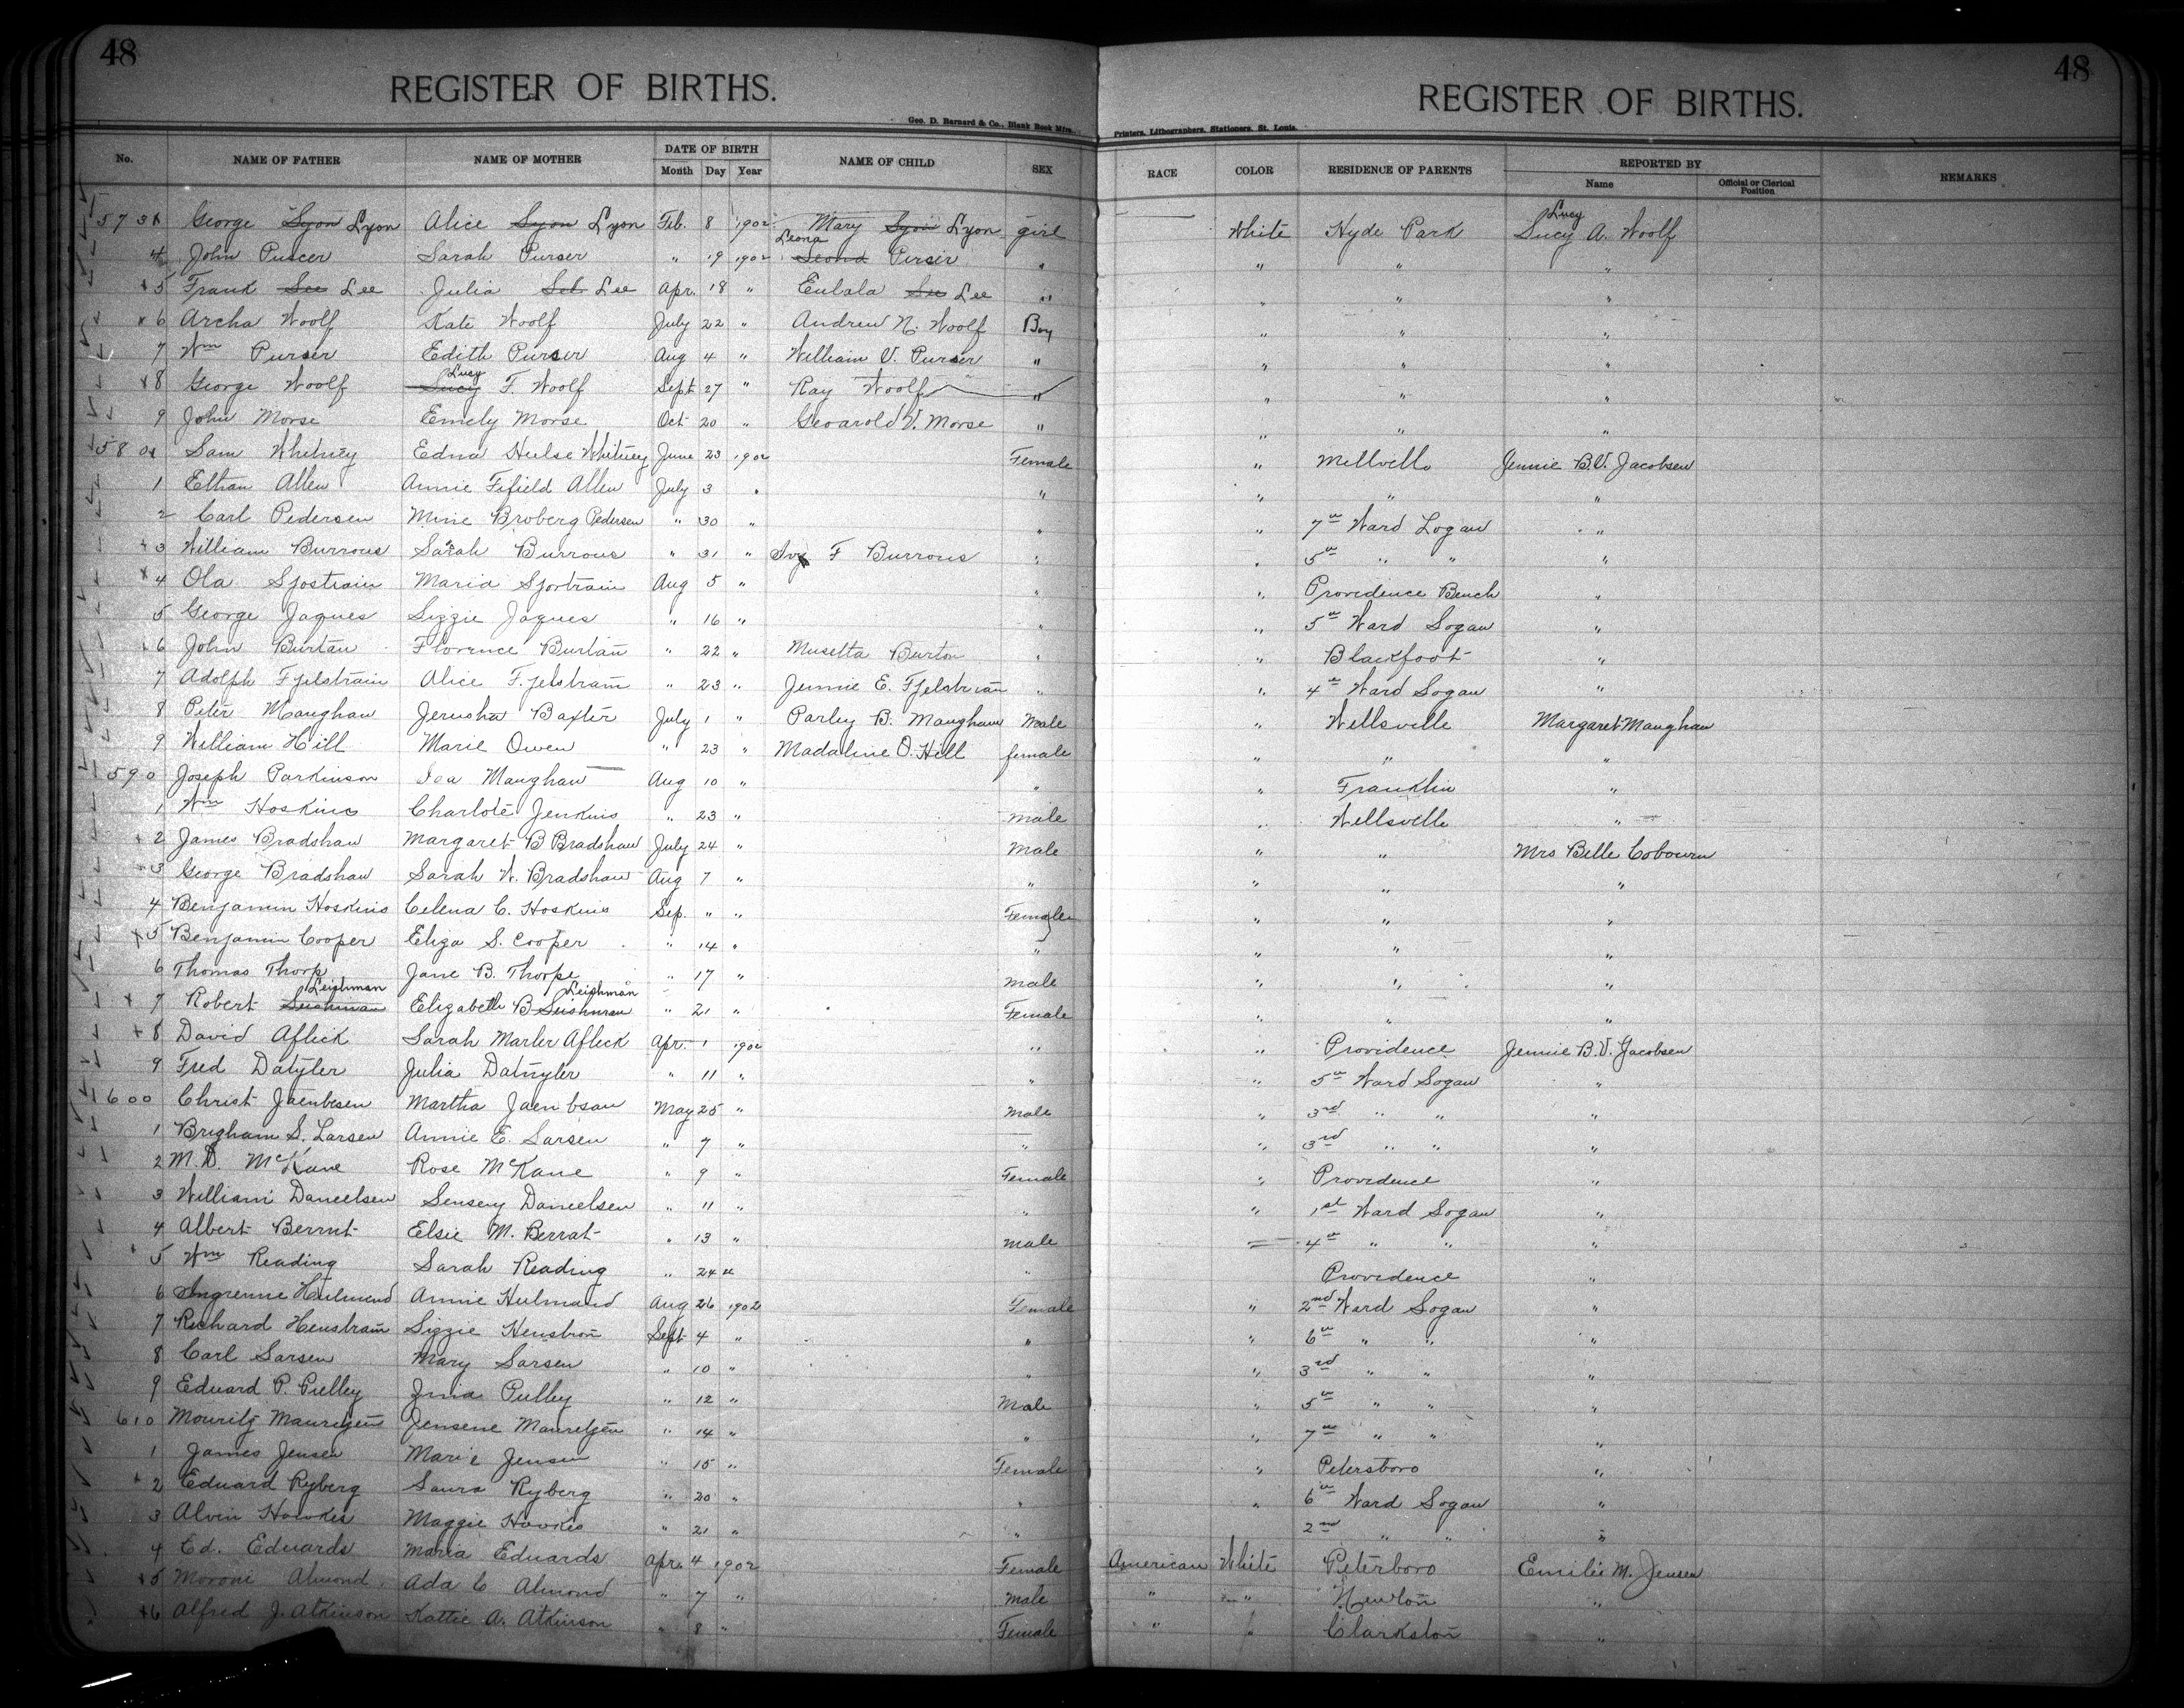 48
48
REGISTER OF BIRTHS.
REGISTER OF BIRTHS.
Geo. D. Barnard & Co., Blank Book Mfrs.
Printers, Lithographers, Stationers, St. Louis.
No. NAME OF FATHER NAME OF MOTHER DATE OF BIRTH Month Day Year NAME OF CHILD SEX RACE COLOR RESIDENCE OF PARENTS REPORTED BY Name Official or Clerical Position REMARKS
573 George Lyon Lyon Alice Lyon Lyon Feb. 8 1902 Mary Lyon Lyon girl White Hyde Park Lucy Lucy A. Woolf
4 John Purcer Sarah Purser " 19 1902 Leona Leona Purser " " " "
5 Frank Lee Lee Julia Lee Lee Apr. 18 " Eulala Lee Lee " " " "
6 Archa Woolf Kate Woolf July 22 " Andrew N. Woolf Boy " " "
7 Wm Purser Edith Purser Aug 4 " William V. Purser " " " "
8 George Woolf Lucy Lucy F. Woolf Sept 27 " Ray Woolf " " " "
9 John Morse Emely Morse Oct 20 " Gearold V. Morse " " " "
580 Sam Whitney Edna Hulse Whitney June 23 1902 Female " Millville Jennie B.V. Jacobsen
1 Ethan Allen Annie Fifield Allen July 3 " " " " "
2 Carl Pedersen Mine Broberg Pedersen " 30 " " " 7th Ward Logan "
3 William Burrous Sarah Burrous " 31 " Ivy F Burrous " " 5th " " "
4 Ola Sjostrain Maria Sjortrain Aug 5 " " " Providence Bench "
5 George Jaques Lizzie Jaques " 16 " " " 5th Ward Logan "
6 John Burtan Florence Burtan " 22 " Musetta Burton " " Blackfoot "
7 Adolph Fjelstrain Alice Fjelstram " 23 " Jennie E. Fjelstram " " 4th Ward Logan "
8 Peter Maughan Jerusha Baxter July 1 " Parley B. Maughan Male " Wellsville Margaret Maughan
9 William Hill Marie Owen " 23 " Madaline O. Hill female " " "
590 Joseph Parkinson Ida Maughan Aug 10 " " " Franklin "
1 Wm Hoskins Charlote Jenkins " 23 " male " Wellsville "
2 James Bradshaw Margaret B Bradshaw July 24 " Male " " Mrs Belle Cobourn
3 George Bradshaw Sarah W. Bradshaw Aug 7 " " " " "
4 Benjamin Hoskins Celena C. Hoskins Sep. " " Female " " "
5 Benjamin Cooper Eliza S. Cooper " 14 " " " " "
6 Thomas Thorp Jane B. Thorpe " 17 " male " " "
7 Robert Leishman Leishman Elizabeth B Leishman Leishman " 21 " Female " " "
8 David Afleck Sarah Marler Afleck Apr. 1 1902 " " Providence Jennie B.V. Jacobsen
9 Fred Datyler Julia Datnyler " 11 " " " 5th Ward Logan "
600 Christ Martha May 25 " male " 3rd " " "
1 Brigham S. Larsen Annie E. Larsen " 7 " " " 3rd " " "
2 M.D. McKane Rose McKane " 9 " Female " Providence "
3 William Daneelsen Daneelsen " 11 " " " 1st Ward Logan "
4 Albert Berrut Elsie M. Berrat " 13 " male " 4th " " "
5 Wm Reading Sarah Reading " 24 " " Providence "
6 Annie Hulmand Aug 26 1902 Female " 2nd Ward Logan "
7 Richard Henstram Lizzie Henstrom Sept 4 " " " 6th " " "
8 Carl Larsen Mary Larsen " 10 " " " 3rd " " "
9 Eduard P. Pulley Pulley " 12 " Male " 5th " " "
610 Mouritz Mauretzen Jensene Mauretzen " 14 " " " 7th " " "
1 James Jensen Marie Jensen " 15 " Female " Petersboro "
2 Eduard Ryberg Laura Ryberg " 20 " " " 6th Ward Logan "
3 Alvin Hawkes Maggie Hawkes " 21 " " 2nd " " "
4 Ed. Eduards Maria Eduards Apr. 4 1902 Female American White Peterboro Emilie M. Jensen
5 Moroni Almond Ada C Almond " 7 " male " " Newton "
6 Alfred J. Atkinson Kattie A. Atkinson " 8 " Female " " Clarkston "